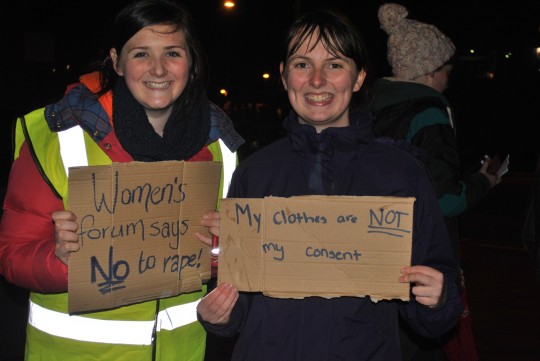 Women's
forum says
No to rape!
My clothes are NOT
my consent